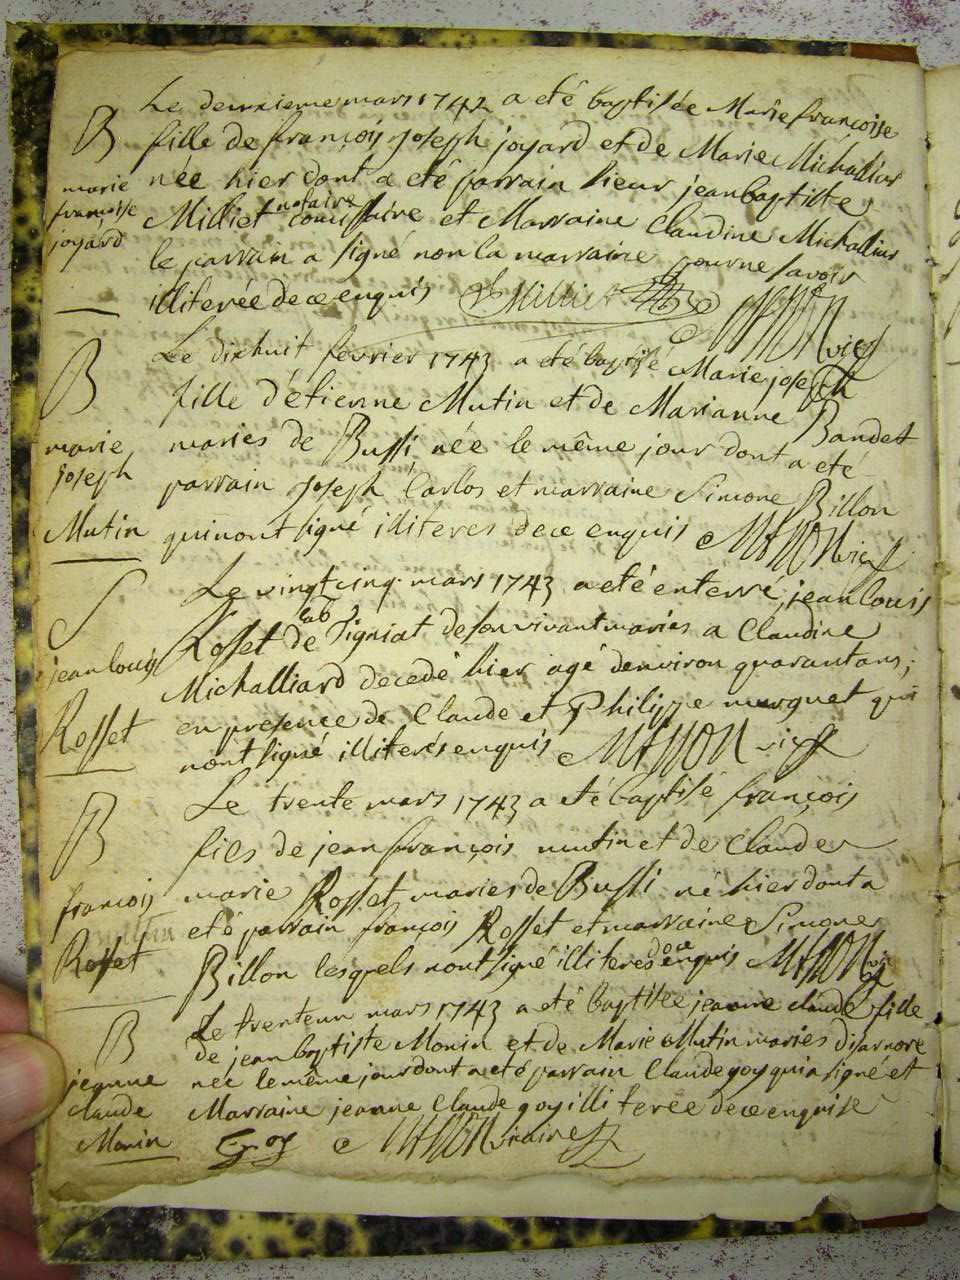 B
marie
françoise
joyard
Le deuxieme mars 1742 a eté baptisée Marie françoise
fille de françois joseph joyard et de Marie Michalliar
née hier dont a eté parrain sieur jean baptiste
Milliet notaire comissaire et Marraine Claudine Michalliar
le parrain a signé non la marraine pour ne savoir
illiterée de ce enquis Milliet
MASSON vic
B
marie
joseph
Mutin
Le dixhuit fevrier 1743 a eté baptisé Marie joseph
fille d'étienne Mutin et de Marianne Bandet
maries de Bussi née le même jour dont a eté
parrain joseph Carlos et marraine Simone Billon
qui nont signé illiteres de ce enquis MASSON vic
S
jean louis
Rosset
Le vingt cinq mars 1743 a eté enterré jean louis
Rosset de signiat de son vivant maries a Claudine
Michalliard decedé hier agé denviron quarant ans,
en presence de Claude et Philippe murguet qui
nont signé illiterés enquis MASSON vic
B
françois
Rosset
Le trente mars 1743 a eté baptisé françois
fils de jean françois mutin et de Claude
marie Rosset maries de Bussi né hier dont a
eté parrain françois Rosset et marraine Simone
Billon lesquels nont signé illiteres de ce enquis MASSON vic
B
jeanne
claude
Monin
Le trenteun mars 1743 a eté baptisée jeanne claude fille
de jean baptiste Monin et de Marie Mutin mariés disarnore
née le même jour dont a eté parrain Claude goy qui a signé et
Marraine jeanne Claude goy illiterée de ce enquise
Goy MASSON vicaire